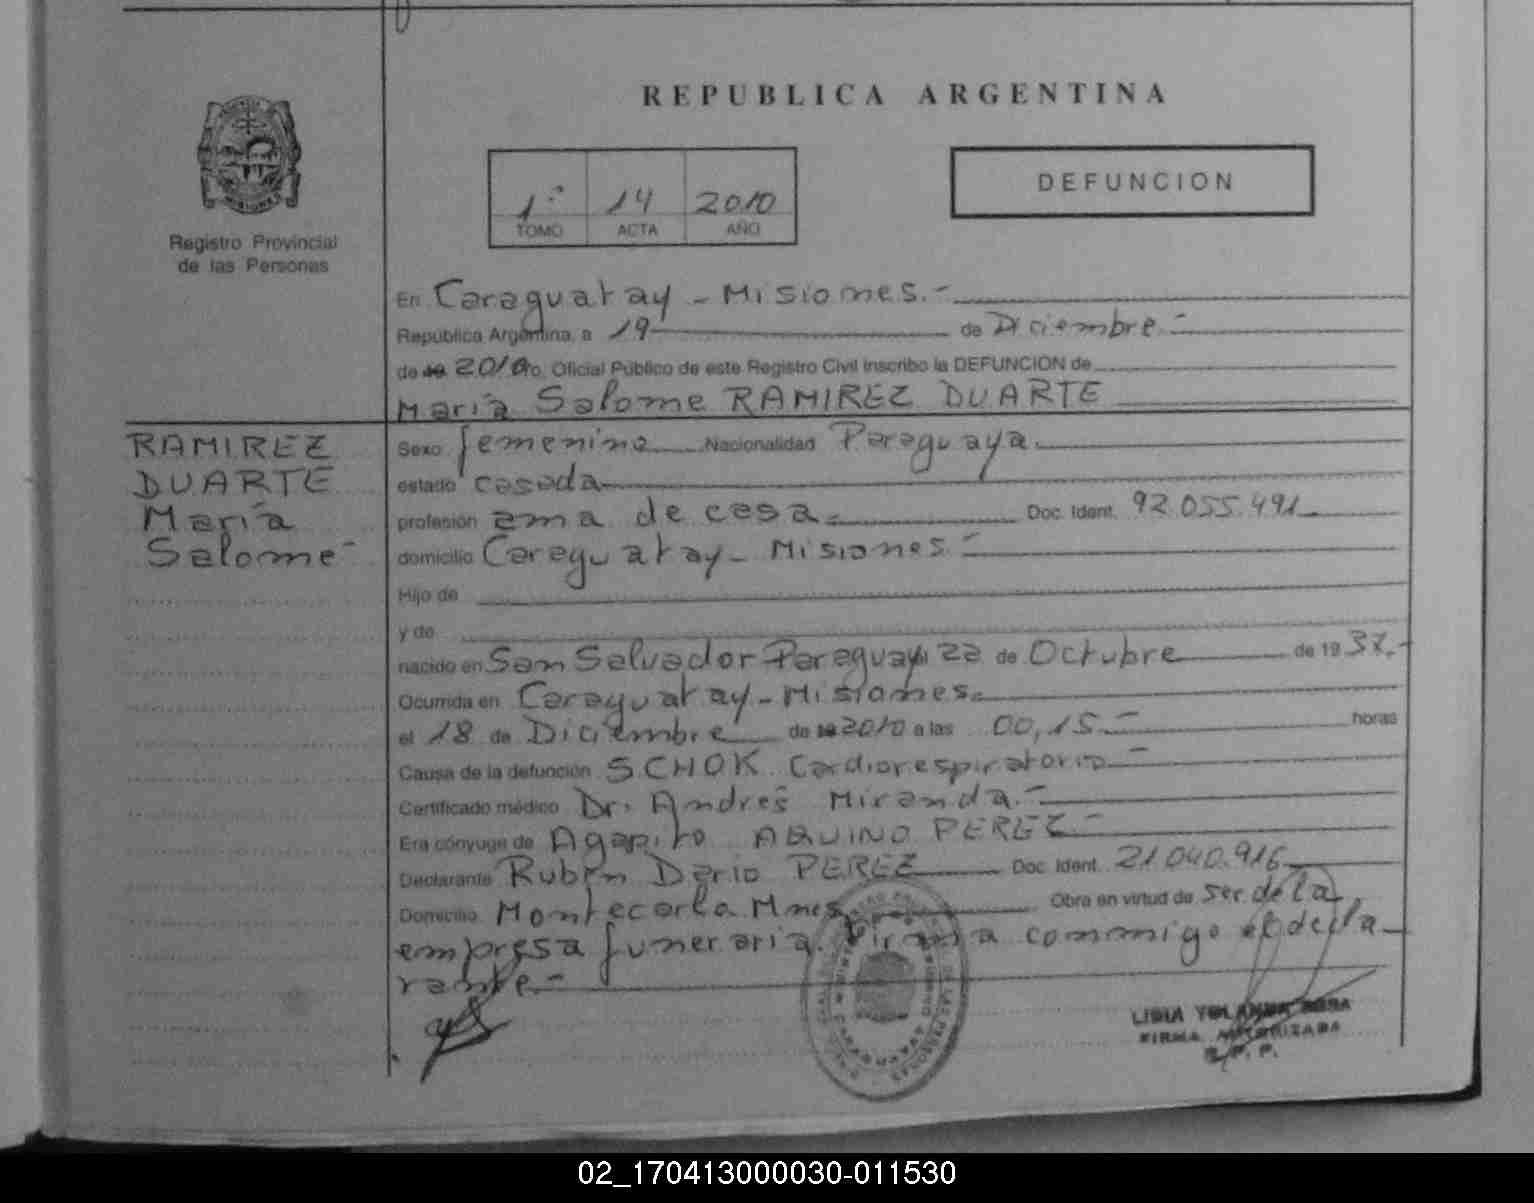 REPUBLICA ARGENTINA
DEFUNCION
1º 14 2010
TOMO ACTA AÑO
MISIONES
Registro Provincial
de las Personas
En Caraguatay - Misiones.-
República Argentina, a 19 de Diciembre.-
de 19 2010 Yo, Oficial Público de este Registro Civil inscribo la DEFUNCION de
María Salome RAMIREZ DUARTE
RAMIREZ
DUARTE
María
Salome-
Sexo femenino Nacionalidad Paraguaya
estado casada
profesión ama de casa. Doc. Ident. 92.055.491
domicilio Caraguatay - Misiones.-
Hijo de
y de
nacido en San Salvador Paraguay 22 de Octubre de 19 37.-
Ocurrida en Caraguatay - Misiones.
el 18 de Diciembre de 19 2010 a las 00,15.- horas
Causa de la defunción SCHOK Cardiorespiratorio-
Certificado médico Dr. Andres Miranda.-
Era cónyuge de Agapito AQUINO PEREZ.-
Declarante Rubén Dario PEREZ Doc. Ident. 21.040.916
Domicilio Montecarlo Mnes. Obra en virtud de ser de la
empresa funeraria. Firma conmigo el decla-
rante.-
LIDIA YOLANDA
FIRMA AUTORIZADA
R. P. P.
02_170413000030-011530